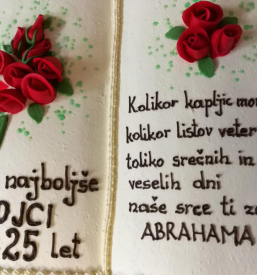 najboljše
OJCI
25 let
Kolikor kapljic mo
kolikor listov veter
toliko srečnih in
veselih dni
naše srce ti ž
ABRAHAMA